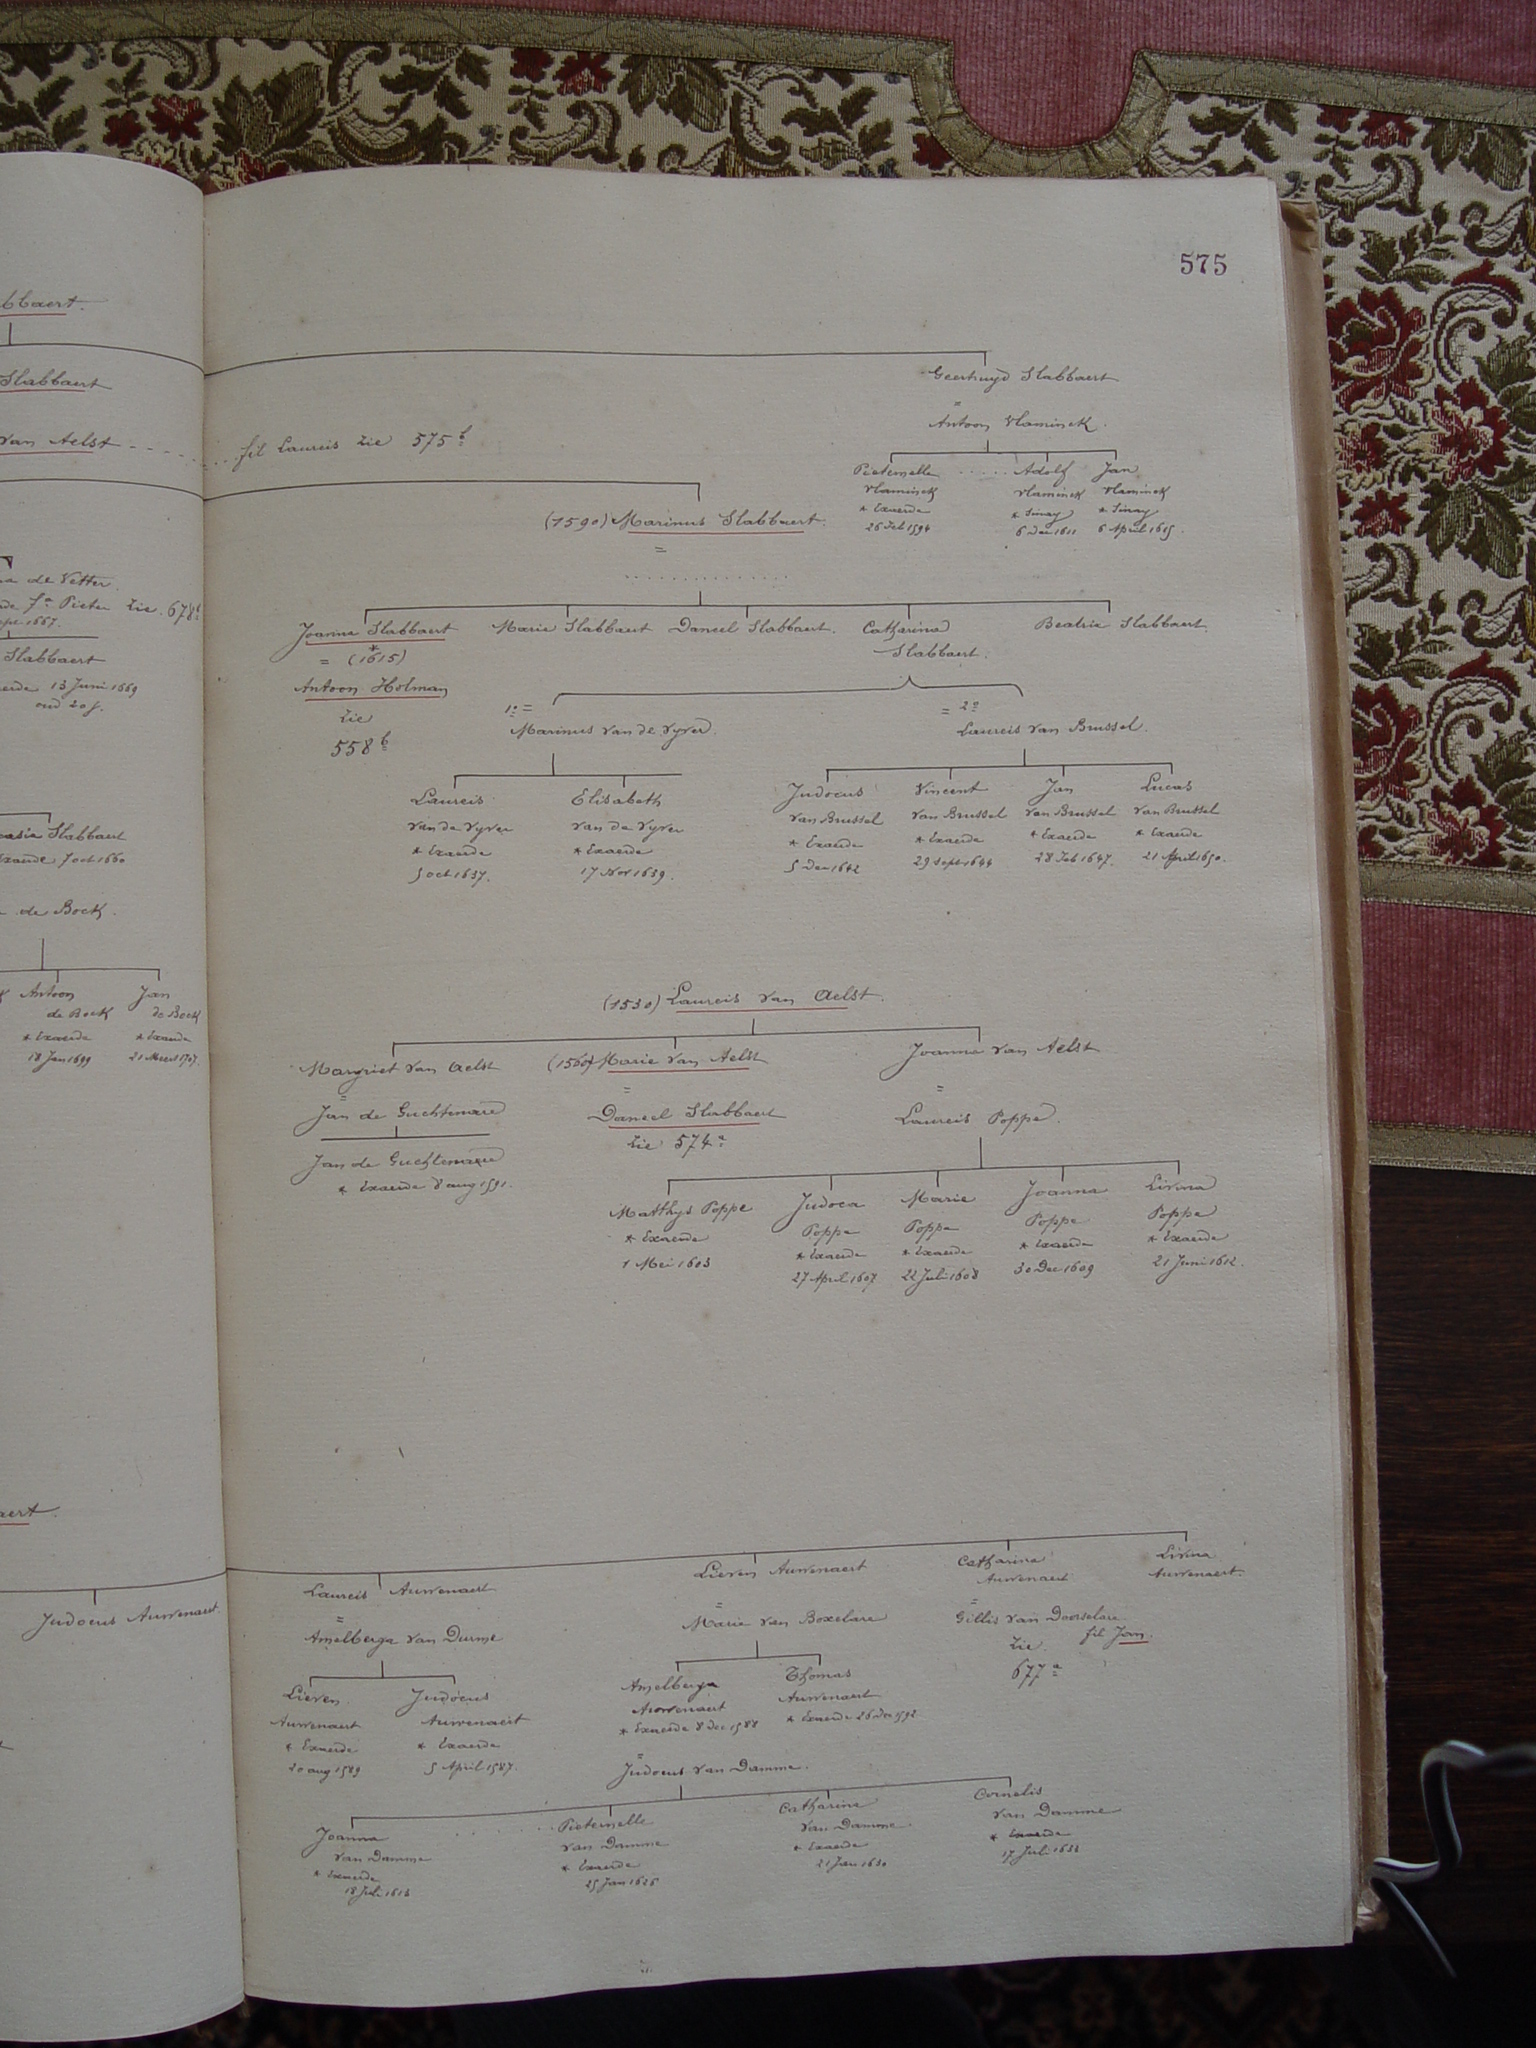 575
Slabbaert
van Aelst
fil Laureis zie 575 b
Geertruyd Slabbaert
=
Antoon Vlaminck.
Pieternelle ..... Adolf Jan
Vlaminck Vlaminck Vlaminck
* Exaerde * Sinay * Sinay
26 Feb 1594 6 Dec 1611 6 April 1615.
(1590) Marinus Slabbaert.
=
..............
de Vetter.
fa Pieter zie 678
1667.
Slabbaert
13 Juni 1669
oud 20 j.
Joanna Slabbaert Marie Slabbaert Daneel Slabbaert. Catharina Beatrix Slabbaert.
Slabbaert.
= (1615)
Antoon Holman
zie
558 b
1o = = 2o
Marinus van de Vyver. Laureis van Brussel.
Laureis Elisabeth Judocus Vincent Jan Lucas
van de Vyver van de Vyver van Brussel van Brussel van Brussel van Brussel
* Exaerde * Exaerde * Exaerde * Exaerde * Exaerde * Exaerde
5 oct 1637. 17 Nov 1639. 5 Dec 1642 29 Sept 1644 28 Feb 1647. 21 April 1650.
Slabbaert
Exaerde 7 oct 1660
de Bock.
Antoon Jan
de Bock de Bock
* Exaerde * Exaerde
18 Jan 1699 21 Meert 1707.
(1530) Laureis van Aelst.
Margriet van Aelst (1560) Marie van Aelst Joanna van Aelst
= = =
Jan de Guchtenaere Daneel Slabbaert Laureis Poppe.
zie 574 a
Jan de Guchtenaere
* Exaerde 8 aug 1591.
Matthys Poppe Judoca Marie Joanna Livina
Poppe Poppe Poppe Poppe
* Exaerde * Exaerde * Exaerde * Exaerde * Exaerde
1 Mei 1603 27 April 1607 22 Juli 1608 30 Dec 1609 21 Juni 1612.
Judocus Auwenaert.
Laureis Auwenaert Lieven Auwenaert Catharina Livina
Auwenaert Auwenaert.
= = =
Amelberga van Durme Marie van Boxelare Gillis van Doorselare
zie fil Jan.
677 a
Lieven Judocus Amelberga Thomas
Auwenaert Auwenaert Auwenaert Auwenaert
* Exaerde * Exaerde * Exaerde 8 Dec 1588 * Exaerde 26 Dec 1592.
20 aug 1589 5 April 1587.
=
Judocus van Damme.
Joanna ..... Pieternelle Catharina Cornelis
van Damme van Damme van Damme van Damme
* Exaerde * Exaerde * Exaerde * Exaerde
18 Juli 1613 25 Jan 1626 21 Jan 1630 17 Juli 1633